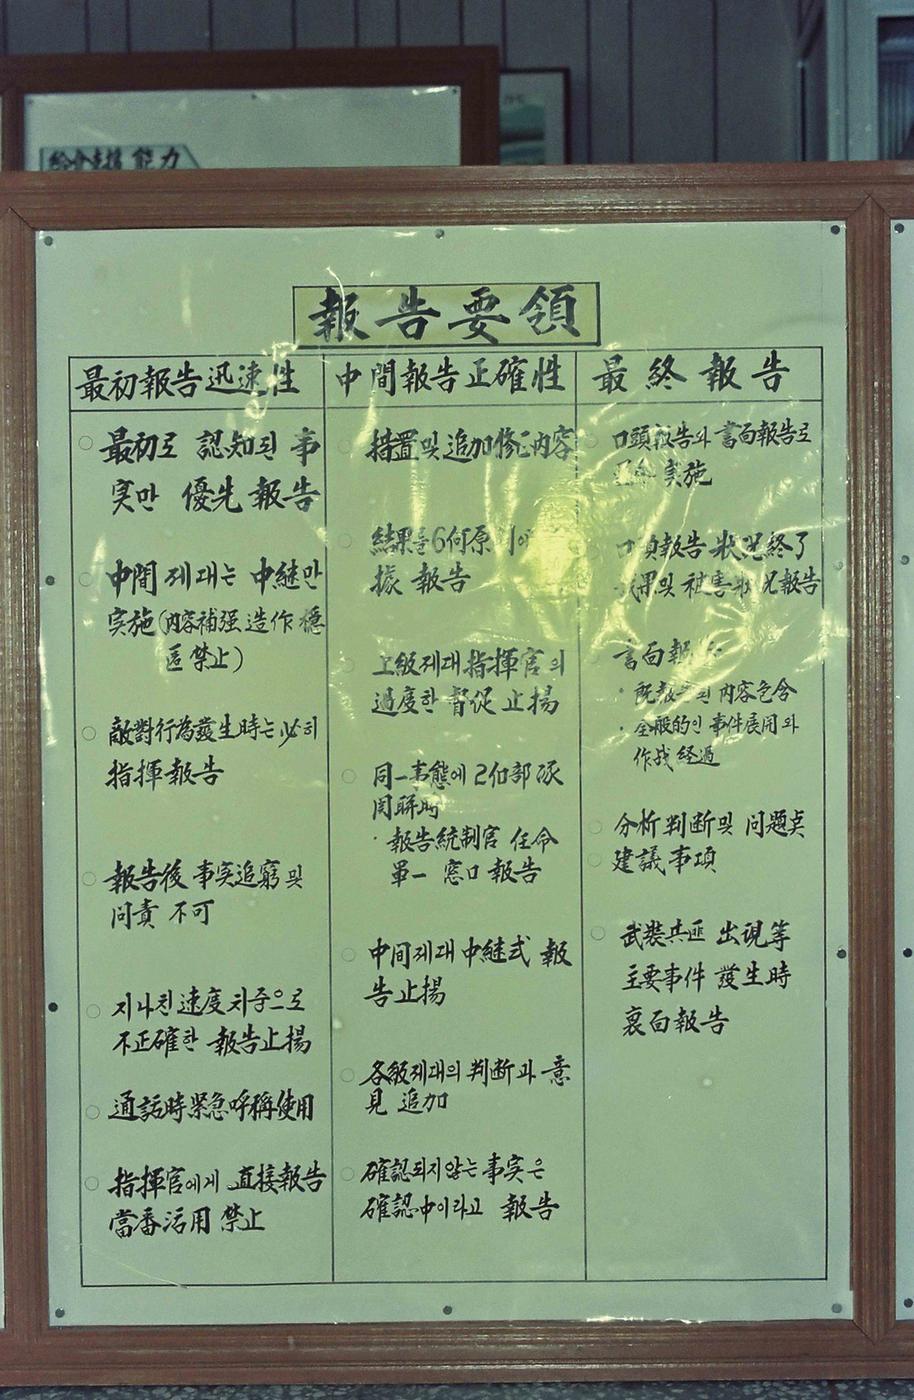 能力
報告要領
最初報告迅速性
○ 最初로 認知된 事
実만 優先 報告
○ 中間 제대는 中継만
実施(内容補强 造作 穩
匿 禁止)
○ 敵對行為發生時는 必히
指揮報告
○ 報告後 事実追窮 및
问責 不可
○ 지나친 速度 치중으로
不正確한 報告止揚
○ 通話時 緊急呼稱使用
○ 指揮官에게 直接報告
當番活用 禁止
中間報告正確性
○ 措置 및 追加修正内容
○ 結果等 6何原
據 報告
○ 上級제대 指揮官의
過度한 督促 止揚
○ 同一事態에 2個部隊
関聯時
· 報告統制官 任命
單一 窓口 報告
○ 中间제대 中継式 報
告止揚
○ 各級제대의 判断과 意
見 追加
○ 確認되지않는 事実은
確認中이라고 報告
最終報告
口頭報告와 書面報告로
実施
報告 狀况終了
및 被害 報告
書面
· 内容包含
· 全般的인 事件展開와
作战 経過
○ 分析 判断 및 问題点
○ 建議事項
○ 武裝共匪 出現等
主要事件 發生時
裏面報告